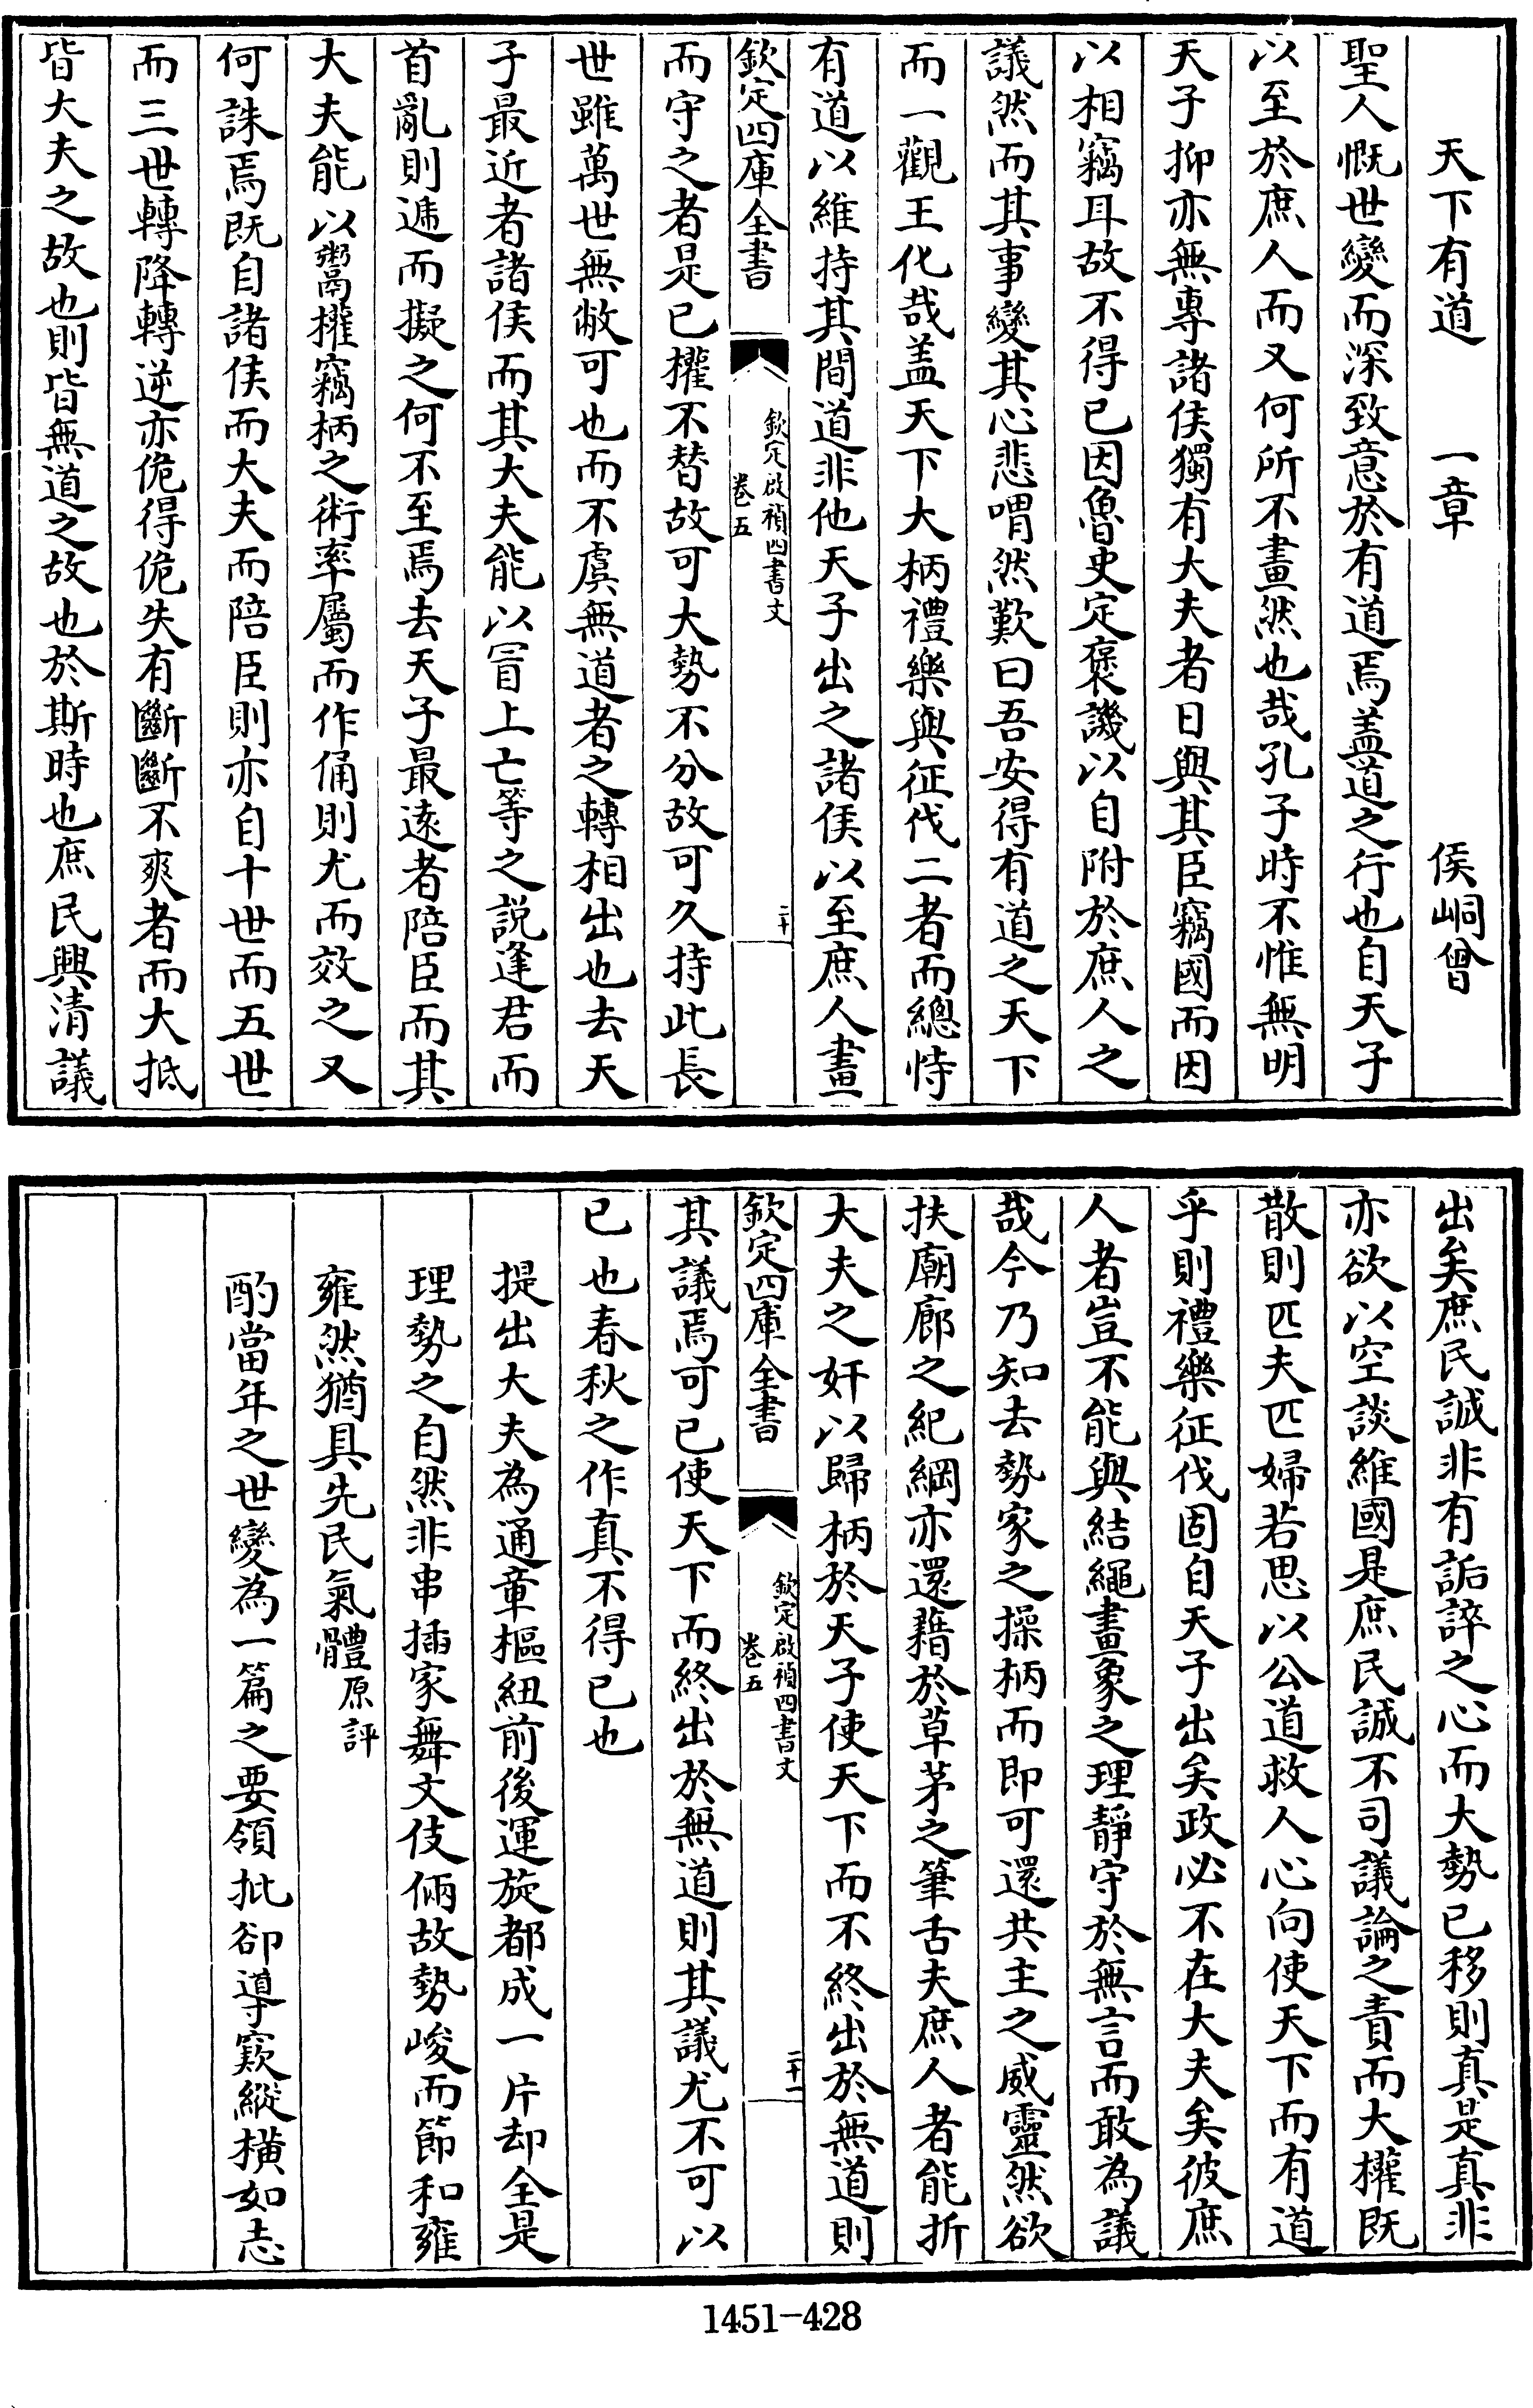 天下有道　一章　侯峒曾
聖人慨世變而深致意於有道焉盖道之行也自天子
以至於庶人而又何所不畫然也哉孔子時不惟無明
天子抑亦無專諸侯獨有大夫者日與其臣竊國而因
以相竊耳故不得已因魯史定褒譏以自附於庶人之
議然而其事變其心悲喟然歎曰吾安得有道之天下
而一觀王化哉盖天下大柄禮樂與征伐二者而總恃
有道以維持其間道非他天子出之諸侯以至庶人畫
欽定四庫全書
欽定啟禎四書文
卷五
二十
而守之者是已權不替故可大勢不分故可久持此長
世雖萬世無敝可也而不虞無道者之轉相出也去天
子最近者諸侯而其大夫能以冒上亡等之說逢君而
首亂則遞而擬之何不至焉去天子最遠者陪臣而其
大夫能以鬻權竊柄之術率屬而作俑則尤而效之又
何誅焉既自諸侯而大夫而陪臣則亦自十世而五世
而三世轉降轉逆亦佹得佹失有斷斷不爽者而大抵
皆大夫之故也則皆無道之故也於斯時也庶民興清議
出矣庶民誠非有詬誶之心而大勢已移則真是真非
亦欲以空談維國是庶民誠不司議論之責而大權既
散則匹夫匹婦若思以公道救人心向使天下而有道
乎則禮樂征伐固自天子出矣政必不在大夫矣彼庶
人者豈不能與結繩畫象之理靜守於無言而敢為議
哉今乃知去勢家之操柄而即可還共主之威靈然欲
扶廟廊之紀綱亦還藉於草茅之筆舌夫庶人者能折
大夫之奸以歸柄於天子使天下而不終出於無道則
欽定四庫全書
欽定啟禎四書文
卷五
二十一
其議焉可已使天下而終出於無道則其議尤不可以
已也春秋之作真不得已也
提出大夫為通章樞紐前後運旋都成一片却全是
理勢之自然非串插家舞文伎倆故勢峻而節和雍
雍然猶具先民氣體原評
酌當年之世變為一篇之要領批卻導窾縱橫如志
1451-428